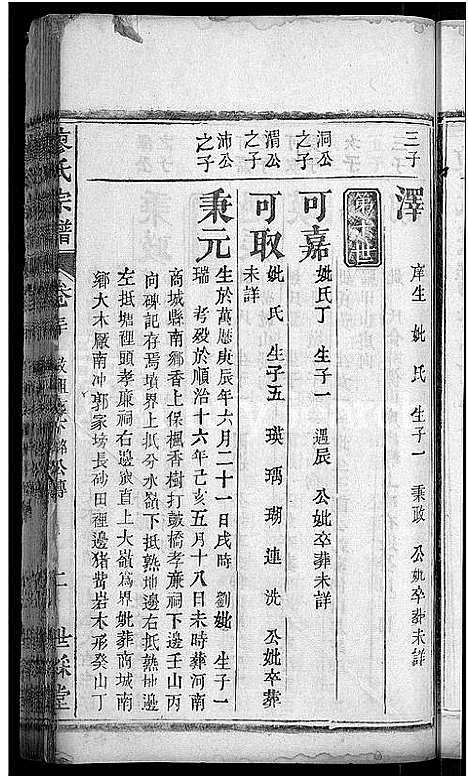 三子
澤
庠生 妣氏 生子一 秉政 公妣卒葬未詳
第十世
洞公之子
可嘉
妣氏丁 生子一 遇辰 公妣卒葬未詳
渭公之子
可取
妣氏 生子五 瑛 瑀 瑚 連 洗 公妣卒葬
未詳
沛公之子
秉元
生於萬歷庚辰年六月二十一日戌時 劉妣 生子一
瑞 考歿於順治十六年己亥五月十八日未時葬河南
商城縣南鄉香上保楓香樹打鼓橋孝廉祠下邊壬山丙
向碑記存焉墳界上抵分水嶺下抵熟地邊右抵熟地邊
左抵塘裡頭孝廉祠右邊放直上大嶺爲界妣葬商城南
鄉大木厰南冲郭家塝長砂田裡邊猪嘴岩木形癸山丁
廖氏宗譜
卷
公傳
二
世綵堂